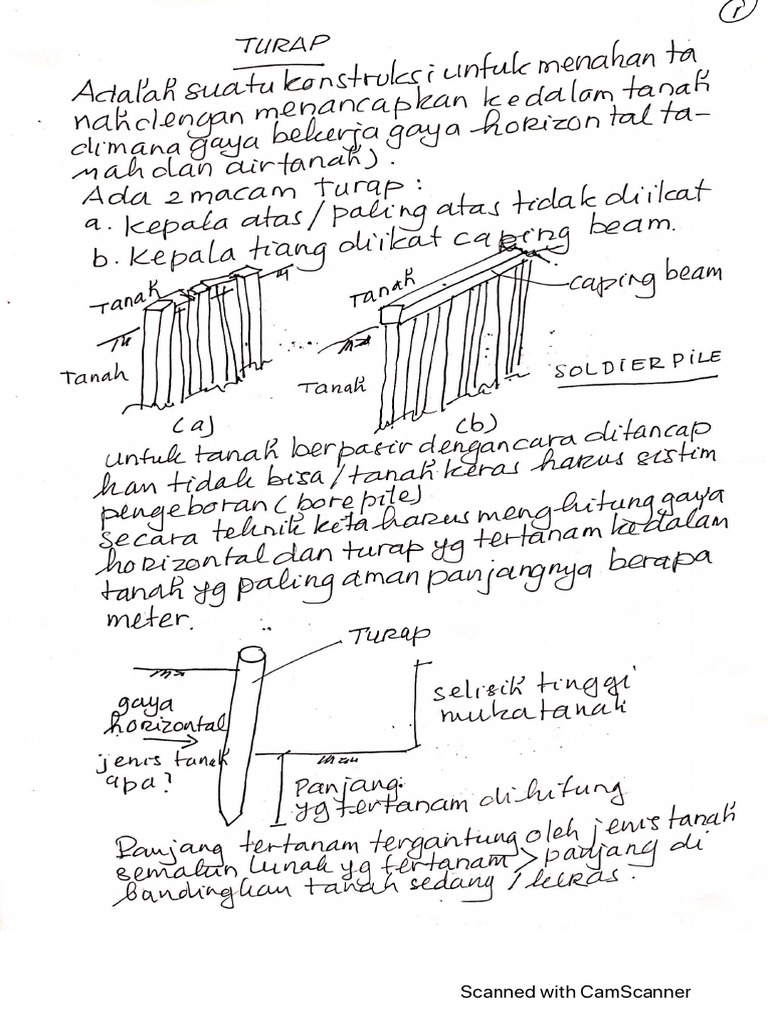 1
TURAP
Adalah suatu konstruksi untuk menahan ta
nah dengan menancapkan kedalam tanah
dimana gaya bekerja gaya horizontal ta-
nah dan air tanah).
Ada 2 macam turap :
a. Kepala atas/paling atas tidak diikat
b. Kepala tiang diikat caping beam.
Tanah
Tanah
(a)
Tanah
caping beam
Tanah
(b)
SOLDIER PILE
untuk tanah berpasir dengan cara ditancap
kan tidak bisa/tanah keras harus sistim
pengeboran (bore pile)
Secara teknik kita harus menghitung gaya
horizontal dan turap yg tertanam kedalam
tanah yg paling aman panjangnya berapa
meter.
TURAP
gaya
horizontal
jenis tanah
apa?
selisih tinggi
muka tanah
Panjang
yg tertanam dihitung
Panjang tertanam tergantung oleh jenis tanah
semakin lunak yg tertanam > panjang di
bandingkan tanah sedang / keras.
Scanned with CamScanner